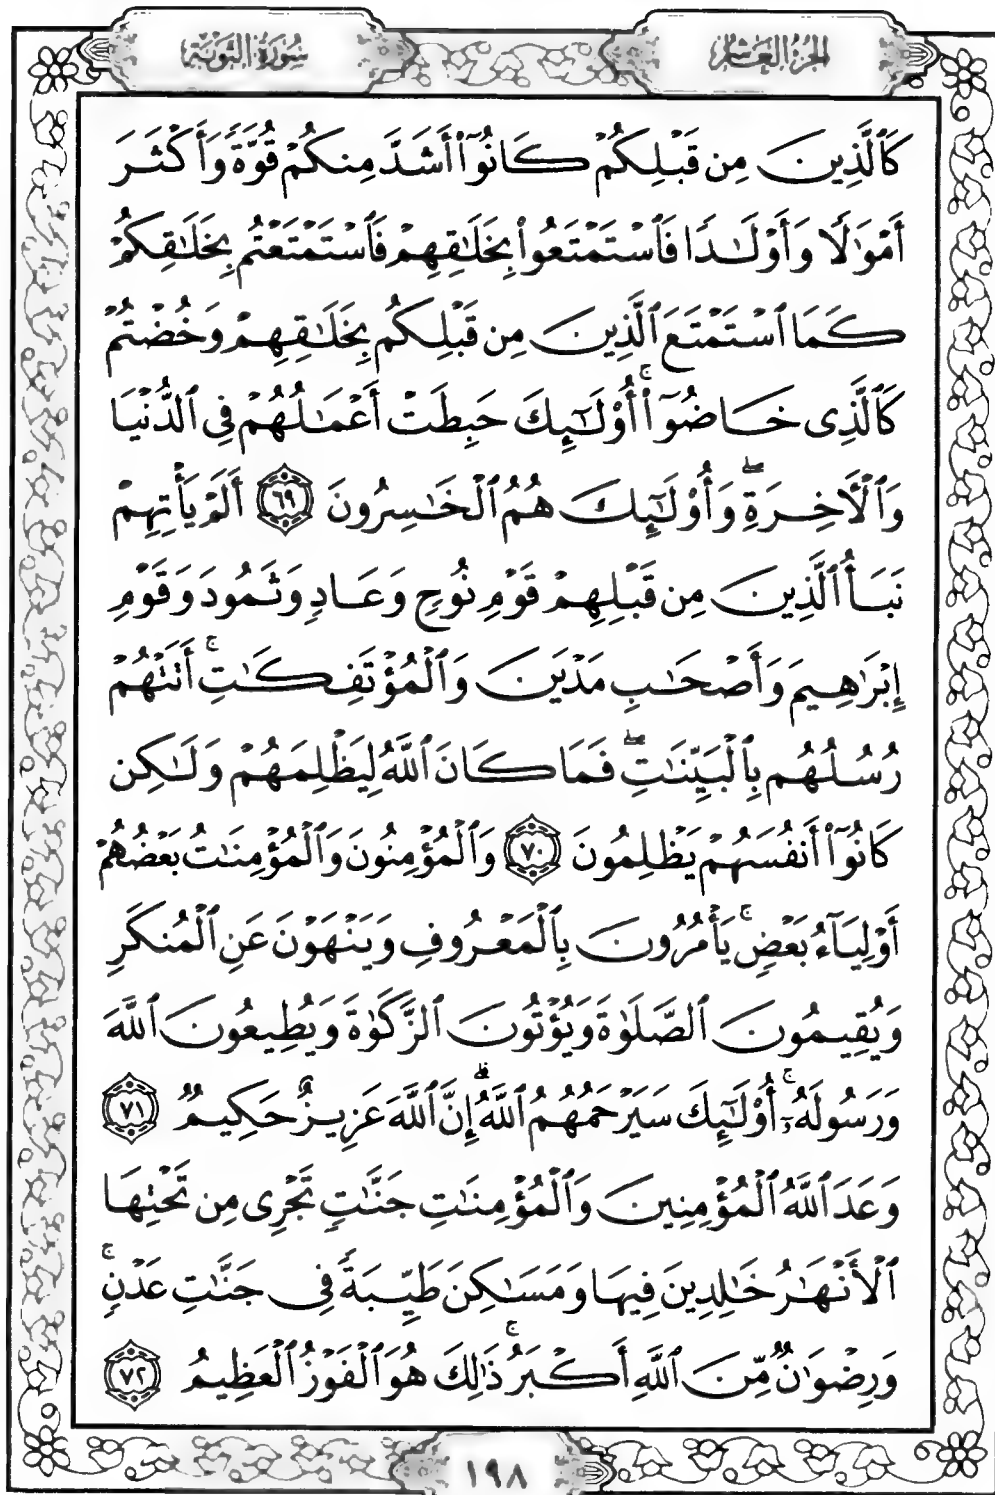 الجزء العاشر
سورة التوبة
كَٱلَّذِينَ مِن قَبْلِكُمْ كَانُوٓا۟ أَشَدَّ مِنكُمْ قُوَّةً وَأَكْثَرَ
أَمْوَٰلًا وَأَوْلَٰدًا فَٱسْتَمْتَعُوا۟ بِخَلَٰقِهِمْ فَٱسْتَمْتَعْتُم بِخَلَٰقِكُمْ
كَمَا ٱسْتَمْتَعَ ٱلَّذِينَ مِن قَبْلِكُم بِخَلَٰقِهِمْ وَخُضْتُمْ
كَٱلَّذِى خَاضُوٓا۟ ۚ أُو۟لَٰٓئِكَ حَبِطَتْ أَعْمَٰلُهُمْ فِى ٱلدُّنْيَا
وَٱلْأَخِرَةِ ۖ وَأُو۟لَٰٓئِكَ هُمُ ٱلْخَٰسِرُونَ ٦٩ أَلَمْ يَأْتِهِمْ
نَبَأُ ٱلَّذِينَ مِن قَبْلِهِمْ قَوْمِ نُوحٍ وَعَادٍ وَثَمُودَ وَقَوْمِ
إِبْرَٰهِيمَ وَأَصْحَٰبِ مَدْيَنَ وَٱلْمُؤْتَفِكَٰتِ ۚ أَتَتْهُمْ
رُسُلُهُم بِٱلْبَيِّنَٰتِ ۖ فَمَا كَانَ ٱللَّهُ لِيَظْلِمَهُمْ وَلَٰكِن
كَانُوٓا۟ أَنفُسَهُمْ يَظْلِمُونَ ٧٠ وَٱلْمُؤْمِنُونَ وَٱلْمُؤْمِنَٰتُ بَعْضُهُمْ
أَوْلِيَآءُ بَعْضٍ ۚ يَأْمُرُونَ بِٱلْمَعْرُوفِ وَيَنْهَوْنَ عَنِ ٱلْمُنكَرِ
وَيُقِيمُونَ ٱلصَّلَوٰةَ وَيُؤْتُونَ ٱلزَّكَوٰةَ وَيُطِيعُونَ ٱللَّهَ
وَرَسُولَهُۥٓ ۚ أُو۟لَٰٓئِكَ سَيَرْحَمُهُمُ ٱللَّهُ ۗ إِنَّ ٱللَّهَ عَزِيزٌ حَكِيمٌ ٧١
وَعَدَ ٱللَّهُ ٱلْمُؤْمِنِينَ وَٱلْمُؤْمِنَٰتِ جَنَّٰتٍ تَجْرِى مِن تَحْتِهَا
ٱلْأَنْهَٰرُ خَٰلِدِينَ فِيهَا وَمَسَٰكِنَ طَيِّبَةً فِى جَنَّٰتِ عَدْنٍ ۚ
وَرِضْوَٰنٌ مِّنَ ٱللَّهِ أَكْبَرُ ۚ ذَٰلِكَ هُوَ ٱلْفَوْزُ ٱلْعَظِيمُ ٧٢
١٩٨